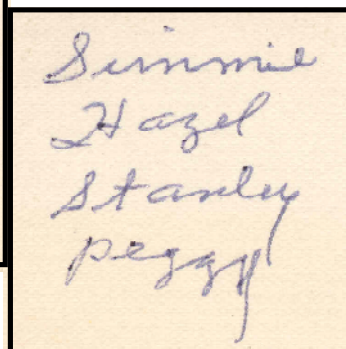 Simmie
Hazel
Stanley
Peggy